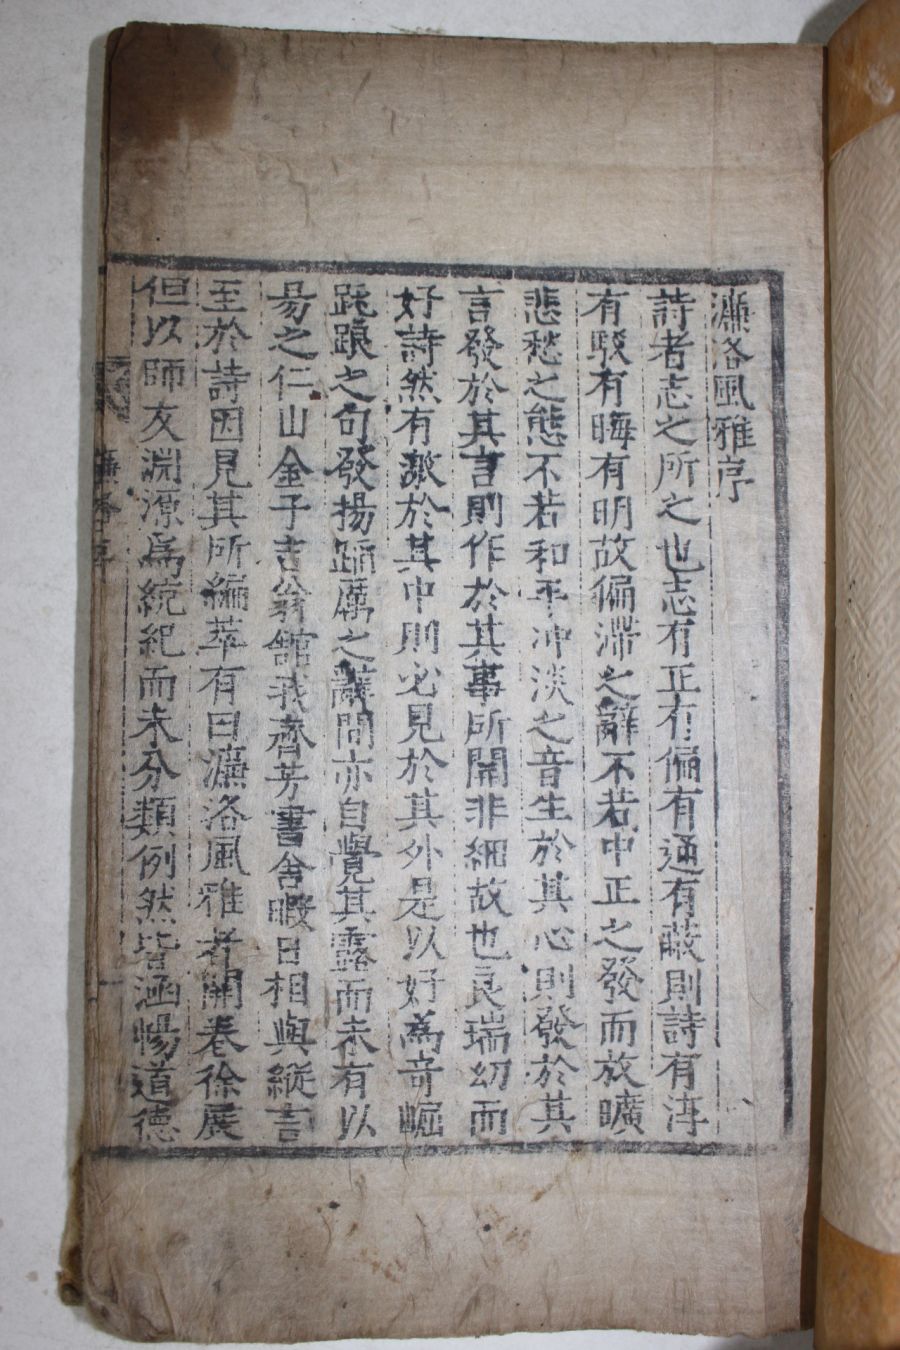 濂洛風雅序
詩者志之所之也志有正有偏有通有蔽則詩有淳
有駁有晦有明故偏滯之辭不若中正之發而放曠
悲愁之態不若和平沖淡之音生於其心則發於其
言發於其言則作於其事所關非細故也良瑞幼而
好詩然有激於其中則必見於其外是以好為奇崛
跌踉之句發揚踊厲之辭間亦自覺其露而未有以
易之仁山金子吉翁舘我齊芳書舍暇日相與縱言
至於詩因見其所編萃有曰濂洛風雅者開卷徐展
但以師友淵源爲統紀而未分類例然皆涵暢道德
濂洛序